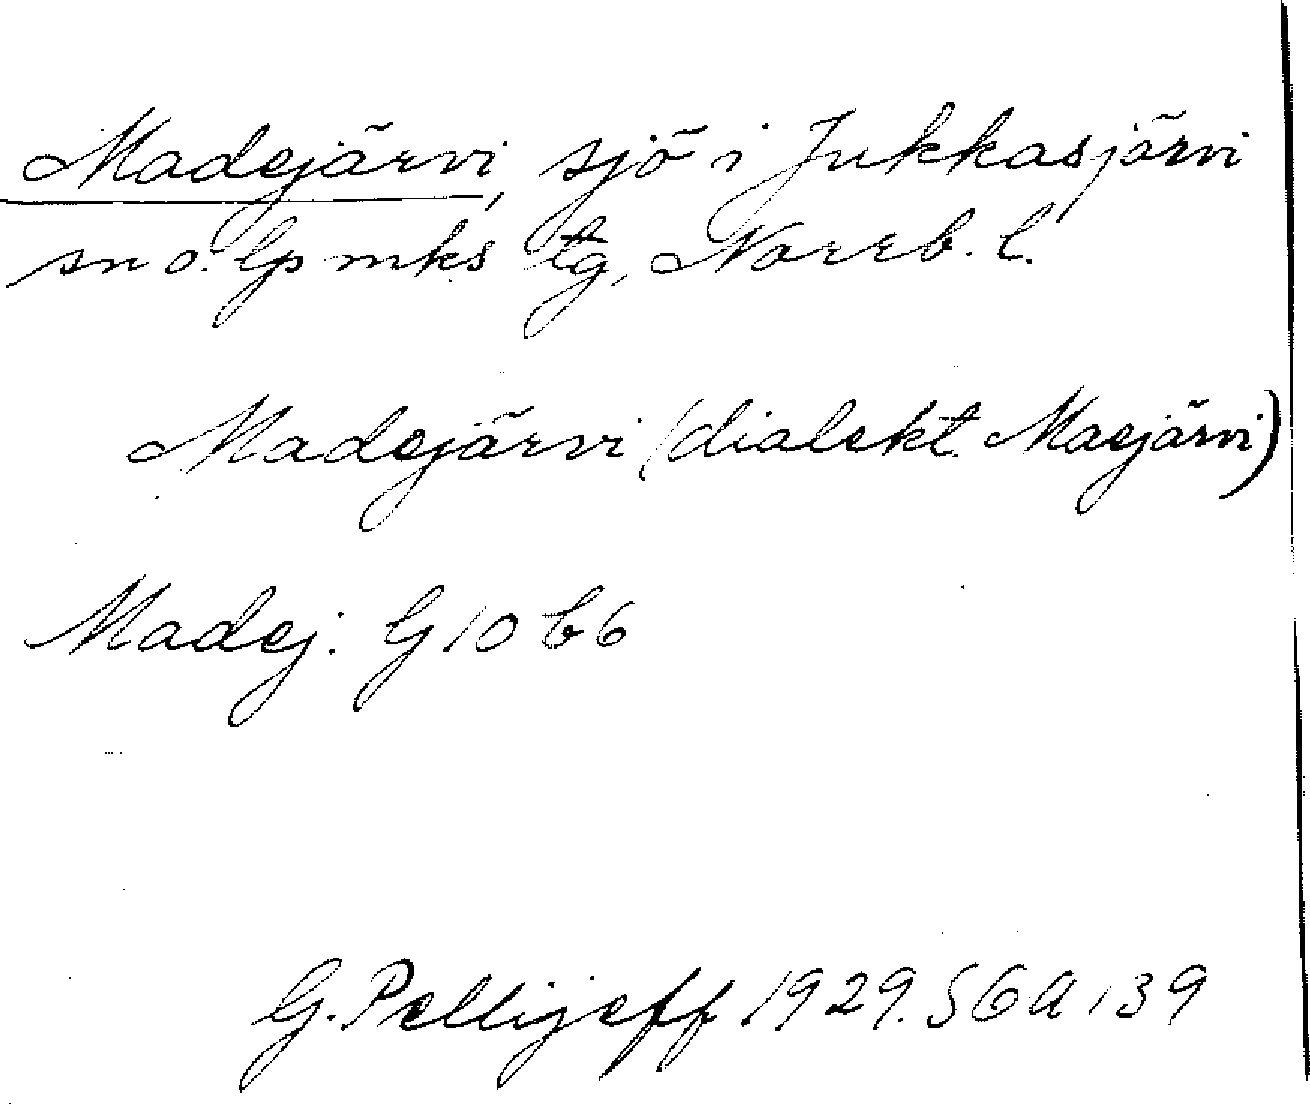 Madejärvi, sjö i Jukkasjärvi
sn o. lpmks tg, Norrb. l.
Madejärvi (dialekt. Maejärvi)
Madej: G 10 b6
G. Pellijeff 1929. SGA 139